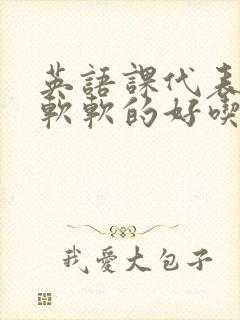 英語課代表
軟軟的好喫
我愛大包子